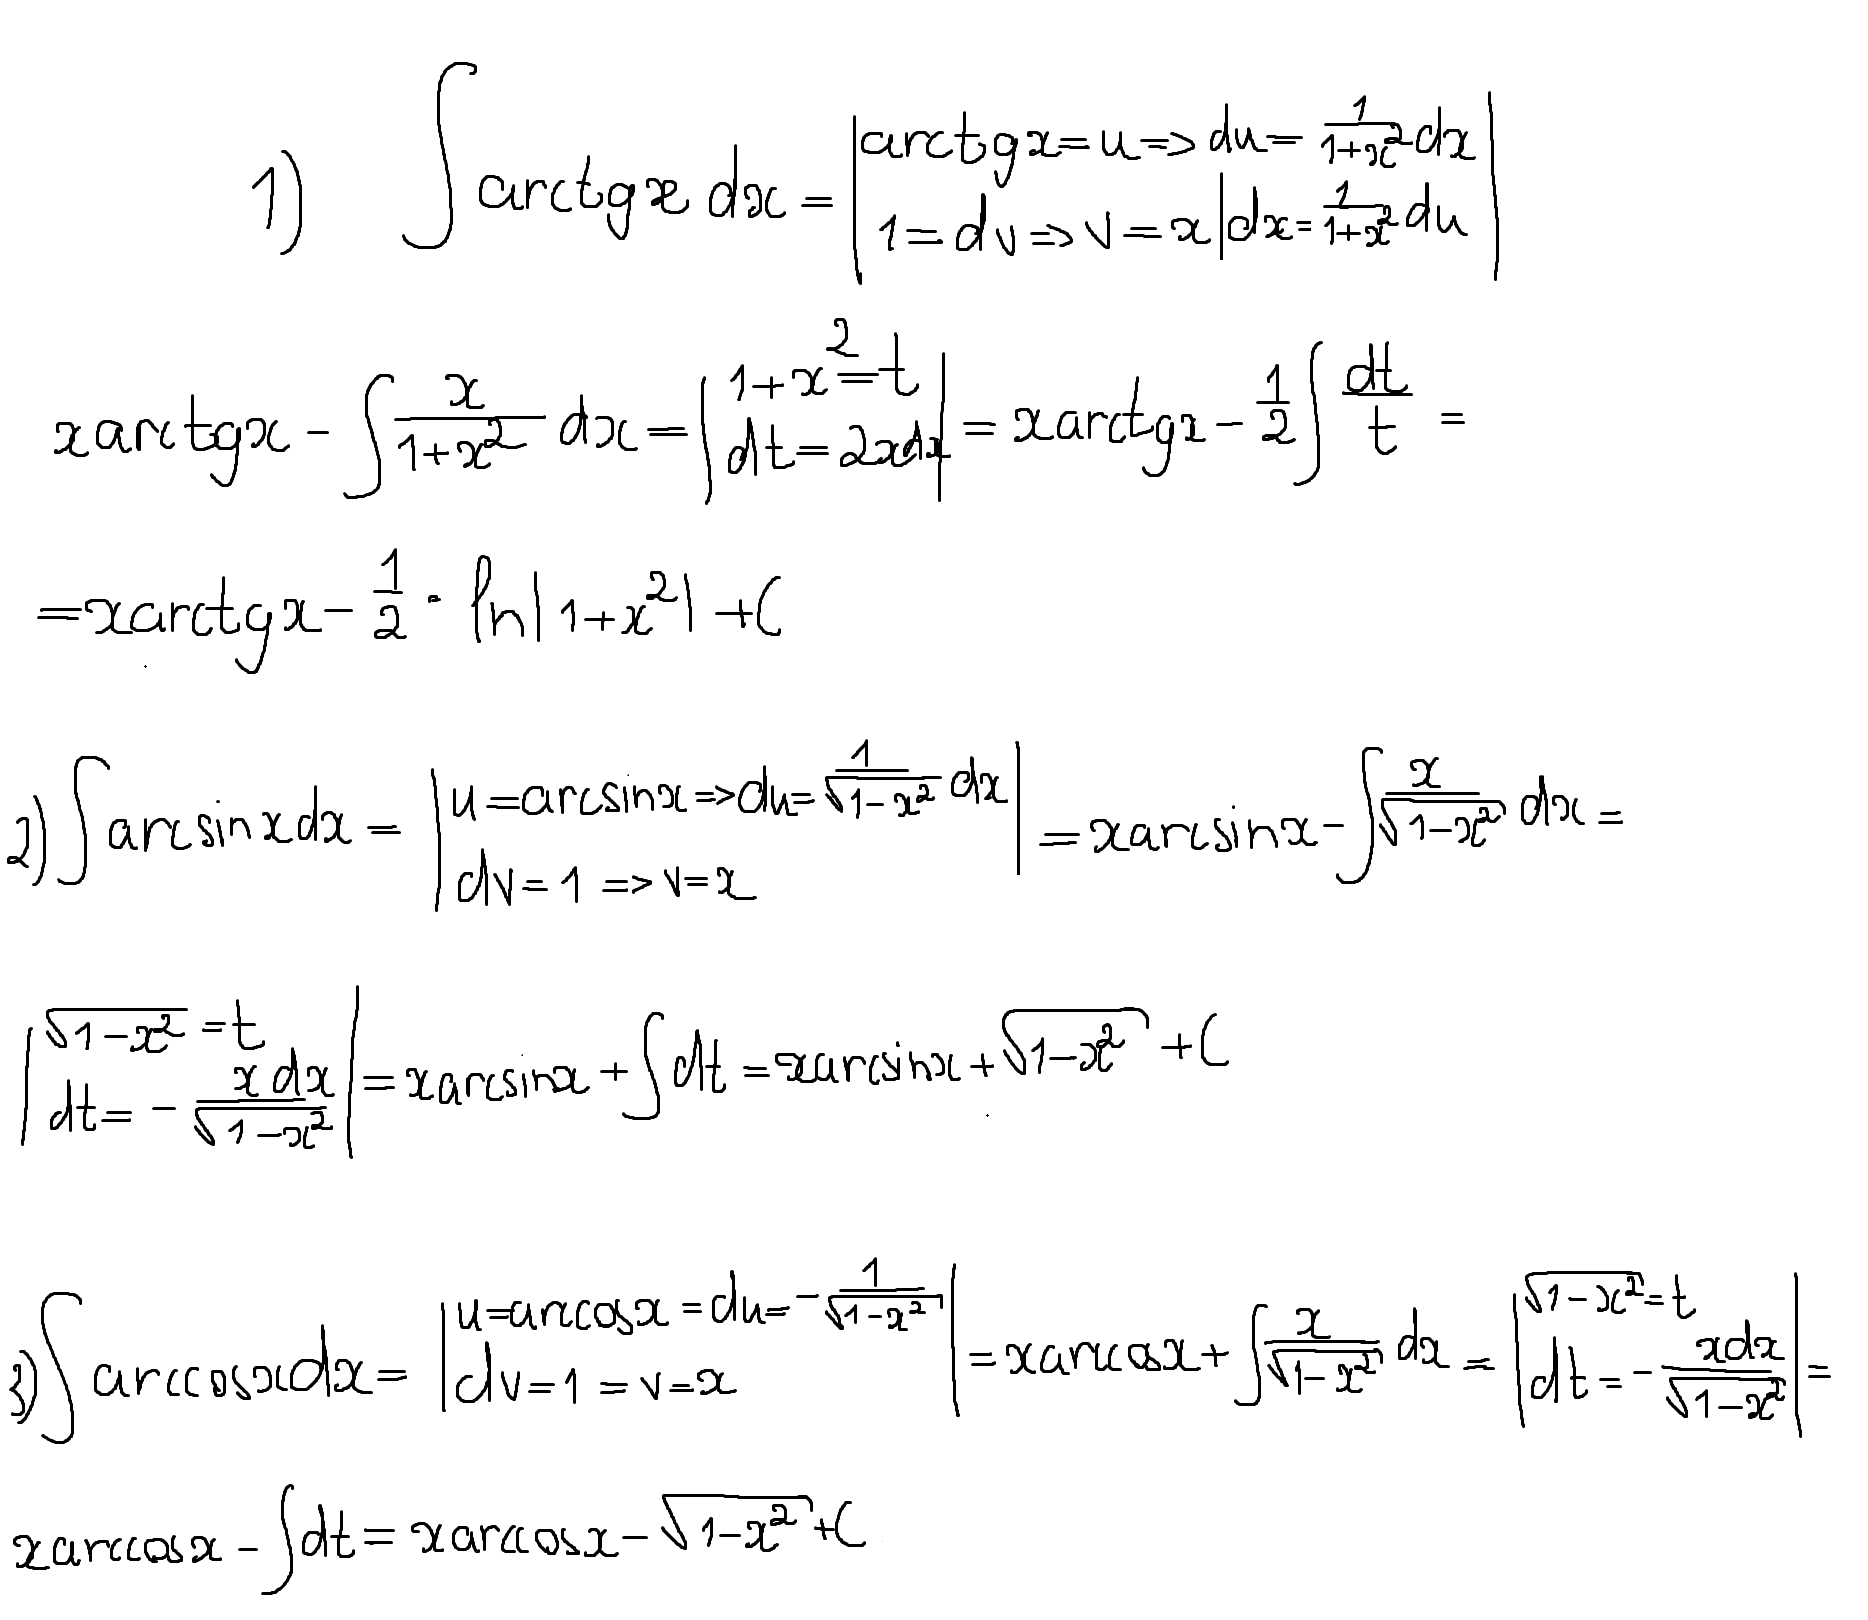 1) ∫ arctgx dx = | arctgx = u => du = 1/(1+x²) dx |
| 1 = dv => v = x | dx = 1/(1+x²) du |
xarctgx - ∫ x/(1+x²) dx = | 1+x² = t
dt = 2xdx | = xarctgx - 1/2 ∫ dt/t =
= xarctgx - 1/2 · ln|1+x²| + C
2) ∫ arcsinxdx = | u = arcsinx => du = 1/√(1-x²) dx
dv = 1 => v = x | = xarcsinx - ∫ x/√(1-x²) dx =
| √(1-x²) = t
dt = - xdx/√(1-x²) | = xarcsinx + ∫ dt = xarcsinx + √(1-x²) + C
3) ∫ arccosxdx = | u = arccosx = du = - 1/√(1-x²)
dv = 1 = v = x | = xarccosx + ∫ x/√(1-x²) dx = | √(1-x²) = t
dt = - xdx/√(1-x²) | =
xarccosx - ∫ dt = xarccosx - √(1-x²) + C